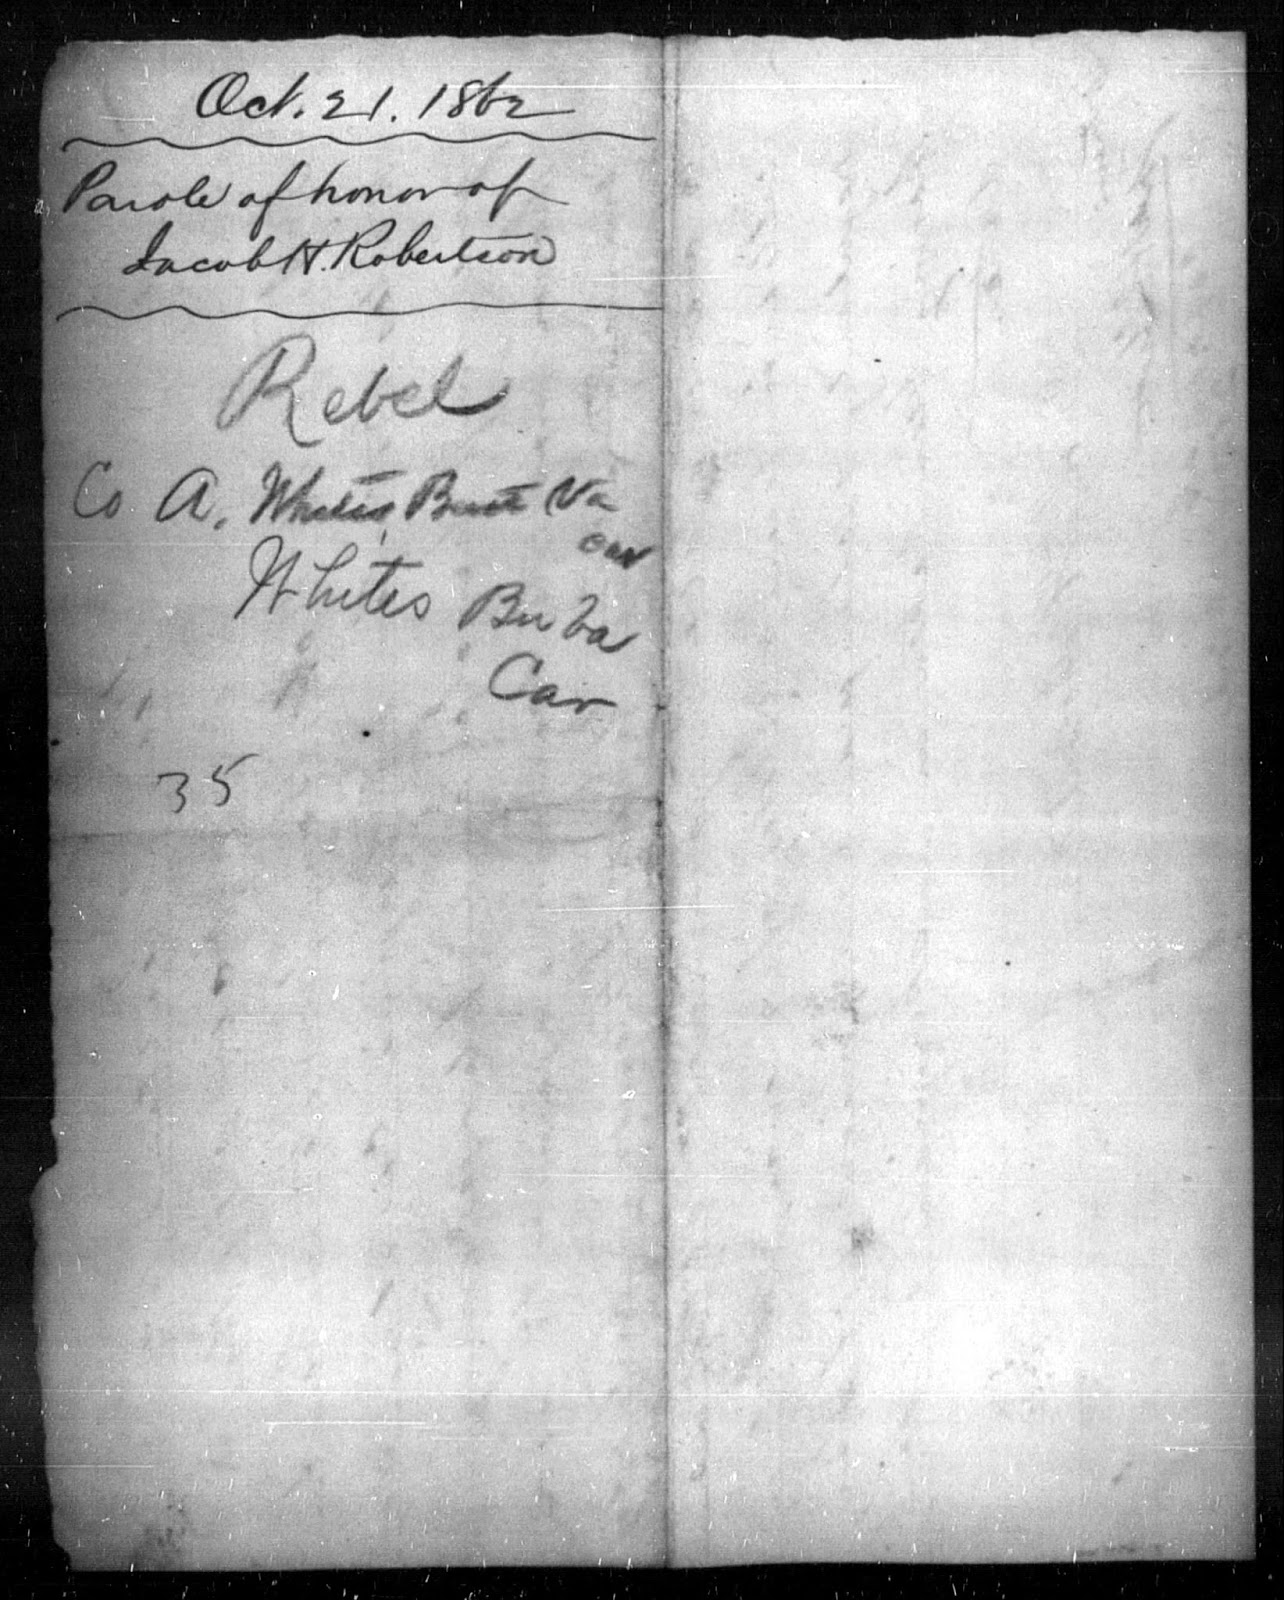 Oct. 21. 1862
Parole of honor of
Jacob H. Robertson
Rebel
Co A, Whites Batt Va
Cav
Whites Bn Va
Cav
35